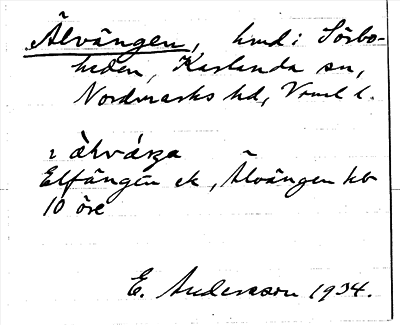 Älvängen, hmd i Sörbo-
heden, Karlanda sn,
Nordmarks hd, Vrml l.
Elfängen ek, Älvängen kb
10 öre
E. Andersson 1934.